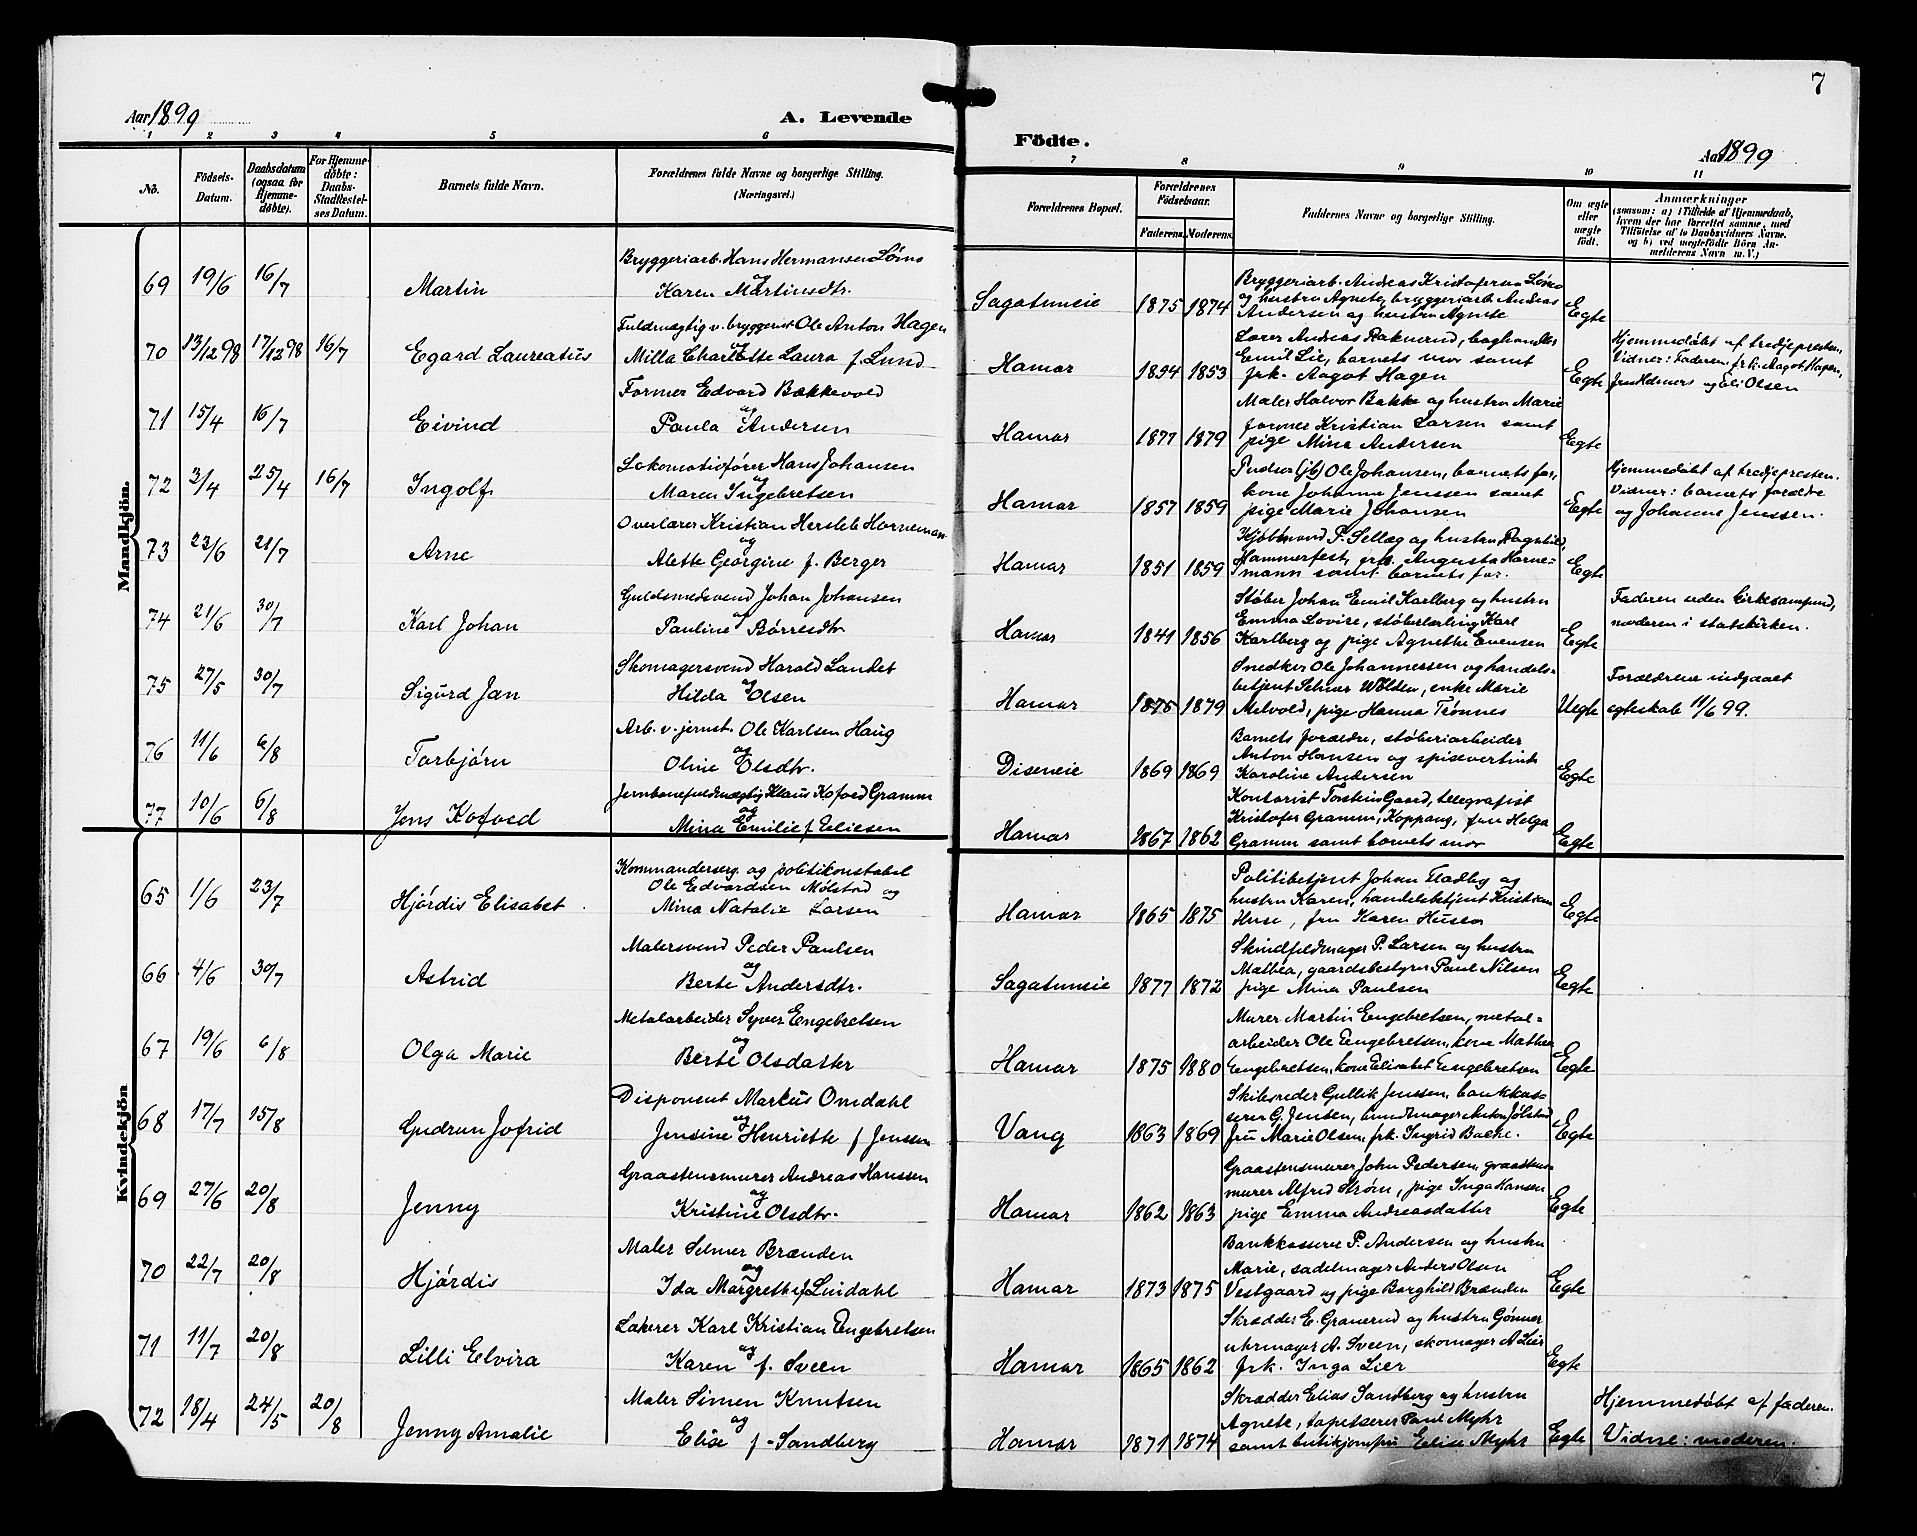 7
Aar 1899
A. Levende
Födte.
Aar 1899
1 2 3 4 5 6 7 8 9 10 11
No.
Födsels-Datum.
Daabsdatum (ogsaa for Hjemme-döbte).
For Hjemme-döbte: Daabs-Stadfestelses Datum.
Barnets fulde Navn.
Forældrenes fulde Navne og borgerlige Stilling. (Næringsvei.)
Forældrenes Bopæl.
Forældrenes Födselsaar.
Faderens. Moderens.
Faddernes Navne og borgerlige Stilling.
Om ægte eller uægte födt.
Anmærkninger
(saasom: a) i Tilfælde af Hjemmedaab, hvem der har forrettet samme, med Tilföielse af to Daabsvidners Navne. og b) ved uægtefödte Börn Anmelderens Navn m. V.)
Mandkjön.
69 19/6 16/7 Martin
Bryggeriarb. Hans Hermansen Løms
og
Karen Martinsdtr.
Sagatuneie 1875 1874
Bryggeriarb. Andreas Kristofersen
og hustru Agnete, bryggeriarb. Andreas
Andersen og hustru Agnete
Egte
70 13/12 98 17/12 98 16/7 Egard Laureatius
Fuldmægtig v. bryggeriet Ole Anton Hagen
og
Milla Charlotte Laura f. Lund
Hamar 1854 1853
Lærer Andreas Raknerud, boghandler
Emil Lie, barnets mor samt
frk. Aagot Hagen
Egte
Hjemmedøbt af tredjepresten.
Vidner: Faderen, frk. Aagot Hagen,
og Eli Olsen
71 15/4 16/7 Eivind
Former Edvard Bækkevold
og
Paula Andersen
Hamar 1877 1879
Maler Halvor Bakke og hustru Marie
former Kristian Larsen samt
pige Mina Andersen
Egte
72 3/4 25/4 16/7 Ingolf
Lokomotivfører Hans Johansen
og
Maren Ingebretsen
Hamar 1857 1859
Pudser (jb) Ole Johansen, barnets far,
kone Johanne Jenssen samt
pige Marie Johansen
Egte
Hjemmedøbt af tredjepresten.
Vidner: barnets forældre
og Johanne Jenssen.
73 23/6 21/7 Arne
Overlærer Kristian Hersleb Horneman
og
Alette Georgine f. Berger
Hamar 1851 1859
Kjøbmand P. Sellæg og hustru Ragnhild,
Hammerfest, frk. Augusta Horne-
mann samt barnets far.
Egte
74 21/6 30/7 Karl Johan
Guldsmedsvend Johan Johansen
og
Pauline Børresdtr
Hamar 1841 1856
Støber Johan Emil Karlberg og hustru
Emma Lovise, støberlærling Karl
Karlberg og pige Agnethe Evensen
Egte
Faderen uden kirkesamfund,
moderen i statskirken.
75 27/5 30/7 Sigurd Jan
Skomagersvend Harald Landet
og
Hilda Olsen
Hamar 1875 1879
Snedker Ole Johannessen og handels-
betjent Selmer Wolden, enke Marie
Melvold, pige Hanna Trønnes
Uegte
Forældrene indgaaet
egteskab 11/6 99.
76 11/6 6/8 Torbjørn
Arb. v. jernst. Ole Karlsen Haug
og
Oline Olsdtr.
Diseneie 1869 1869
Barnets forældre, støberiarbeider
Anton Hansen og spisevertinde
Karoline Andersen
Egte
77 10/6 6/8 Jens Kofoed
Jernbanefuldmægtig Klaus Kofoed Gramm
og
Mina Emilie f. Eliesen
Hamar 1867 1862
Kontorist Torstein Gaard, telegrafist
Kristofer Gramm, Koppang, fru Helga
Gramm samt barnets mor
Egte
Kvindekjön
65 1/6 23/7 Hjørdis Elisabet
Kommandersergt. og politikonstabel
Ole Edvardsen Mølstad og
Mina Natalie Larsen
Hamar 1865 1875
Politibetjent Johan Fladby og
hustru Karen, handelsbetjent Kristian
Huse, fru Karen Husson
Egte
66 4/6 30/7 Astrid
Malersvend Peder Paulsen
og
Berte Andersdtr.
Sagatuneie 1877 1872
Skindfeldmager P. Larsen og hustru
Mathea, gaardsbestyrer Paul Nilsen
pige Mina Paulsen
Egte
67 19/6 6/8 Olga Marie
Metalarbeider Syver Engebretsen
og
Berte Olsdatter
Hamar 1875 1880
Murer Martin Engebretsen, metal-
arbeider Ole Engebretsen, kone Mathea
Engebretsen, kone Elisabet Engebretsen
Egte
68 17/7 15/8 Gudrun Jofrid
Disponent Markus Omdahl
og
Jensine Henriette f. Jenssen
Vang 1863 1869
Skibsreder Gullik Jenssen, bankkas-
serer G. Jensen, bundtmager Anton Jølstad
fru Marie Olsen, frk. Ingrid Bache.
Egte
69 27/6 20/8 Jenny
Graastensmurer Andreas Hanssen
og
Kristine Olsdtr.
Hamar 1862 1863
Graastensmurer John Pedersen, graastens-
murer Alfred Strøm, pige Inga Hansen
pige Emma Andreasdatter
Egte
70 22/7 20/8 Hjørdis
Maler Selmer Brænden
og
Ida Margrethe f. Lindahl
Hamar 1873 1875
Bankkasserer P. Andersen og hustru
Marie, sadelmager Anders Olsen
Vestgaard og pige Borghild Brænden
Egte
71 11/7 20/8 Lilli Elvira
Lakerer Karl Kristian Engebretsen
og
Karen f. Sveen
Hamar 1865 1862
Skrædder E. Granerud og hustru Gønner
uhrmager A. Sveen, skomager A Lier
frk. Inga Lier
Egte
72 18/4 24/5 20/8 Jenny Amalie
Maler Simen Knutsen
og
Elise f. Sandberg
Hamar 1871 1874
Skrædder Elias Sandberg og hustru
Agnete, tapetserer Paul Myhr
samt butikjomfru Elise Myhr
Egte
Hjemmedøbt af faderen.
Vidne: moderen.